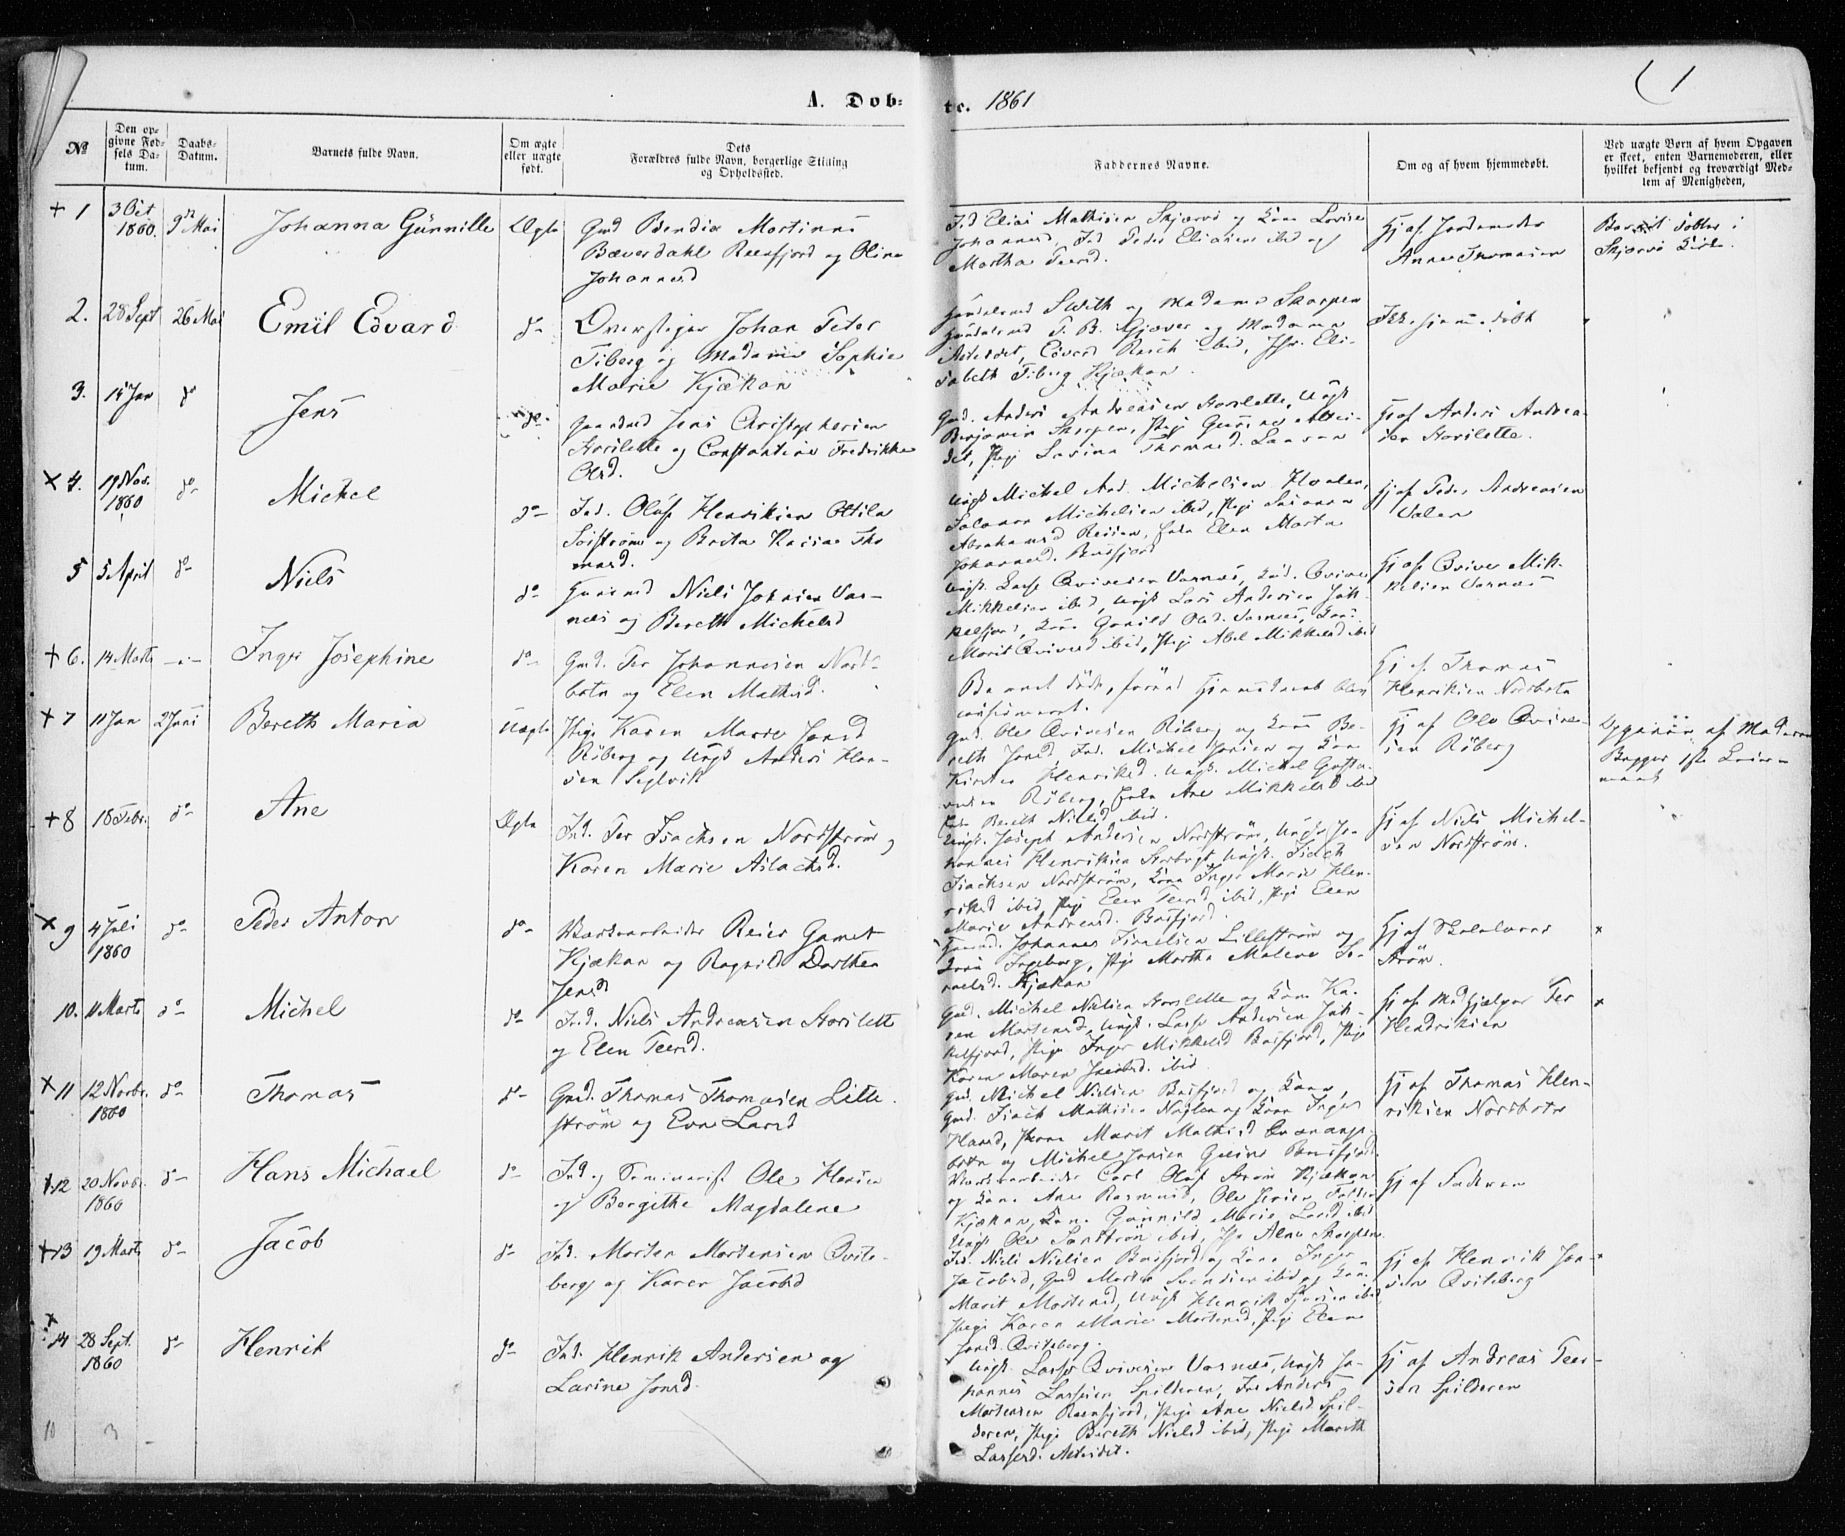 A. Døb-
te. 1861
1
№
Den op-
givne Fød-
sels Da-
tum.
Daabs-
Datum.
Barnets fulde Navn.
Om ægte
eller uægte
født.
Dets
Forældres fulde Navn, borgerlige Stilling
og Opholdssted.
Faddernes Navne.
Om og af hvem hjemmedøbt.
Ved uægte Børn af hvem Opgaven
er skeet, enten Barnemoderen, eller
hvilket bekjendt og troværdigt Med-
lem af Menigheden,
+ 1
3 Oct
1860.
9de Mai
Johanna Günnille
Ægte
Gmd Bendix Martinus
Bæverdahl Reisfjord og Oline
Johannesd
Ind Elias Mathisen Skjærvø og Kone Lovise
Johannesd, Ind Peder Eliasen ibid og
Martha Peersd.
Hj af Jordemoder
Anne Thomasen
Barnet døbt i
Skjærvø Kirke.
2.
28 Sept
26 Mai
Emil Edvard
do
Overstiger Johan Peter
Fiberg og Madame Sophie
Marie Kjækan
Handelsmd Smith og Madame Skorpen
Handelsmd F. B. Gjæver og Madame
Alteidet, Edvard Rasch ibid, Jfr. Eli-
sabeth Fiberg Kjækan.
Ikke hjemmedøbt
3.
15 Jan
do
Jens
do
Gaardmd Jens Christophersen
Storslette og Constantine Fredrikke
Olsd.
Gmd. Anders Andreasen Storslette, Ungk
Benjamin Skorpen, Pige Gurine Altei-
det, Pige Lasina Thomasd.
Hj af Anders Andrea-
sen Storslette.
x 4.
19 Nov.
1860
do
Michel
do
Ind. Oluf Henriksen Attila
Sørstrøm og Brita Kaisa Tho-
masd.
Ungk Michel And. Michelsen
Salamon Michelsen ibid, Pige Susanna
Abrahamsd Reisen, Enke Elen Marta
Johannesd. Bursfjord
Hj af Peder Andreasen
Valen
5
5 April
do
Niels
do
Huusmd Niels Johnsen Var-
næs og Bereth Michelsd
Ungk. Lasse Qvivesen Varnæs, Ind. Qvive
Mikkelsen ibid, Ungk Lars Andersen Jøk-
kelfjord, Kone Gunild Olsd. Varnæs, Kone
Marit Qvivesd ibid, Pige Abel Mikkelsd ibid
Hj af Qvive Mik-
kelsen Varnæs
+ 6.
14 Marts
Inger Josephine
do
Gmd. Per Johannesen Nord-
botn og Elen Mathisd.
Barnet døde, førend Hjemmedaab blev
confirmeret.
Hj af Thomas
Henriksen Nordbotn
+ 7
11 Jan
2 Juni
Bereth Maria
Uægte
Pige Karen Marie Jonsd
Røberg og Ungk Anders Han-
sen Seglvik
Gmd. Ole Qvivesen Røberg og Kone Be-
reth Jonsd, Ind. Michel Jonsen og Kone
Kirsten Henriksd. Ungk. Michel Gusta-
vsen Røberg, Enke Ane Mikkelsd ibid
Enke Bereth Nielsd ibid.
Hj af Ole Qvive-
sen Røberg
Opgaven af Moderen
Begges 1ste Leier-
maal
+ 8
18 Febr.
do
Ane
Ægte
Ind. Per Isachsen Nordstrøm og
Karen Marie Aslachsd.
Ungk. Joseph Andersen Nordstrøm, Ungk Jo-
hannes Henriksen Storbugt, Ungk. Isach
Isachsen Nordstrøm, Kone Inger Marie Hen-
riksd ibid Pige Elen Peersd, ibid, Pige Elen
Marie Andreasd. Bursfjord.
Hj af Niels Michel-
sen Nordstrøm.
x 9
4 Juli
1860
do
Peder Anton
do
Værksarbeider Reier Gamst
Kjækan og Ragnild Dorthea
Jensd
Huusmd. Johannes Israelsen Lillestrøm og
Kone Ingeborg, Pige Martha Malene Is-
raelsd. Kjækan
Hj af Skolelærer
Strøm.
x
10.
11 Marts
do
Michel
do
Ind. Niels Andreasen Storslett
og Elen Peersd.
Gmd. Michel Nielsen Storslette og Kone Ka-
ren Mortensd, Ungk. Lasse Andersen Jøk-
kelfjord, Pige Inger Mikkelsd Bursfjord, Pige
Karen Maren Jacobsd. ibid
Hj af Medhjælper Per
Hendriksen
x
x 11
12 Novbr.
1860
do
Thomas
do
Gmd. Thomas Thomasen Lille-
strøm og Eva Larsd
Gmd. Michel Nielsen Bursfjord og Kone,
Gmd. Isach Mathisen og Kone Inger
Hansd, Kone Marit Mathisd Qvænangs-
botn og Michel Jonsen Bursfjord
Hj af Thomas Hen-
riksen Nordbotn
+ 12
20 Novb.
1860
do
Hans Michael
do
Ind og Seminarist Ole Hansen
og Bergithe Magdalene
Værksarbeider Carl Olaf Strøm Kjækan
og Kone Ane Rasmusd, Ole Jensen
Kjækan, Kone Gunnild Marie Larsd ibid
Ungk Ole Sandstrøm ibid, Jfr Alma Skorpen.
Hj af Faderen
+ 13
19 Marts
do
Jacob
do
Ind. Morten Mortensen Qvite-
berg og Karen Jacobsd
Ind. Niels Nielsen Bursfjord og Kone Inger
Jacobsd, Gmd Morten Svendsen ibid og Kone
Marit Mortensd, Ungk Henrik ibid,
Pige Karen Marie Mortensd, Pige Elen
Jonsd Qviteberg.
Hj af Henrik Jon-
sen Qviteberg
x
x 14
28 Sept.
1860
do
Henrik
do
Ind. Henrik Andersen og
Larine Jonsd
Ungk. Lasse Qvivesen Varnæs, Ungk Jo-
hannes Larssen Spilderen, Ind Anders
Mortensen Reenfjord, Pige Ane Nielsd Spil-
deren, Pige Bereth Nielsd ibid, Pige Mareth
Lassesd. Alteidet.
Hj af Andreas Peer-
sen Spilderen
10
3